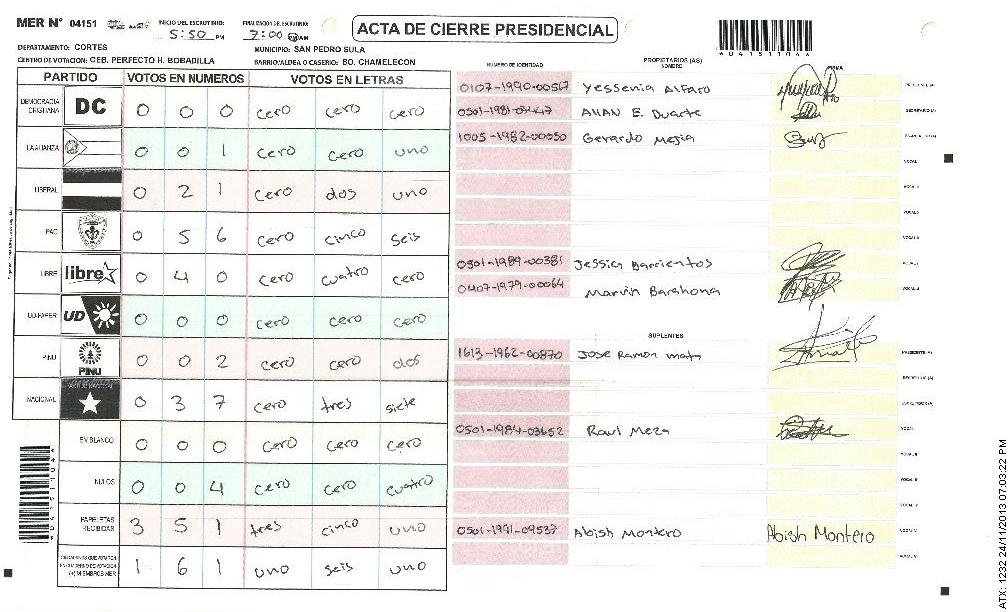 MER N° 04151
INICIO DEL ESCRUTINIO:
5:50 PM
FINALIZACION DEL ESCRUTINIO:
7:00
ACTA DE CIERRE PRESIDENCIAL
DEPARTAMENTO: CORTES
MUNICIPIO: SAN PEDRO SULA
CENTRO DE VOTACION: CEB. PERFECTO H. BOBADILLA
BARRIO/ALDEA O CASERIO: BO. CHAMELECON
PARTIDO VOTOS EN NUMEROS VOTOS EN LETRAS
DEMOCRACIA CRISTIANA DC 0 0 0 cero cero cero
LA ALIANZA 0 0 1 cero cero uno
LIBERAL 0 2 1 cero dos uno
PAC 0 5 6 cero cinco seis
LIBRE libre 0 4 0 cero cuatro cero
UD-FAPER UD 0 0 0 cero cero cero
PINU PINU 0 0 2 cero cero dos
NACIONAL 0 3 7 cero tres siete
EN BLANCO 0 0 0 cero cero cero
NULOS 0 0 4 cero cero cuatro
PAPELETAS RECIBIDAS 3 5 1 tres cinco uno
CIUDADANOS QUE VOTARON EN CUADERNO DE VOTACION (+) MIEMBROS MER 1 6 1 uno seis uno
NUMERO DE IDENTIDAD
PROPIETARIOS (AS)
NOMBRE
FIRMA
0107-1990-00567 Yessenia Alfaro PRESIDENTE (A)
Allan E. Duarte SECRETARIO (A)
1005-1982-00550 Gerardo Mejia
0501-1989-00381 Jessica Barrientos
0407-1979-00064 Marvin Barahona
SUPLENTES
1613-1962-00870 Jose Ramon mata PRESIDENTE (A)
SECRETARIO (A)
0501-1984-03652 Raul Meza
0501-1991-09537 Abish Montero Abish Montero
ATX: 1232 24/11/2013 07:03:22 PM